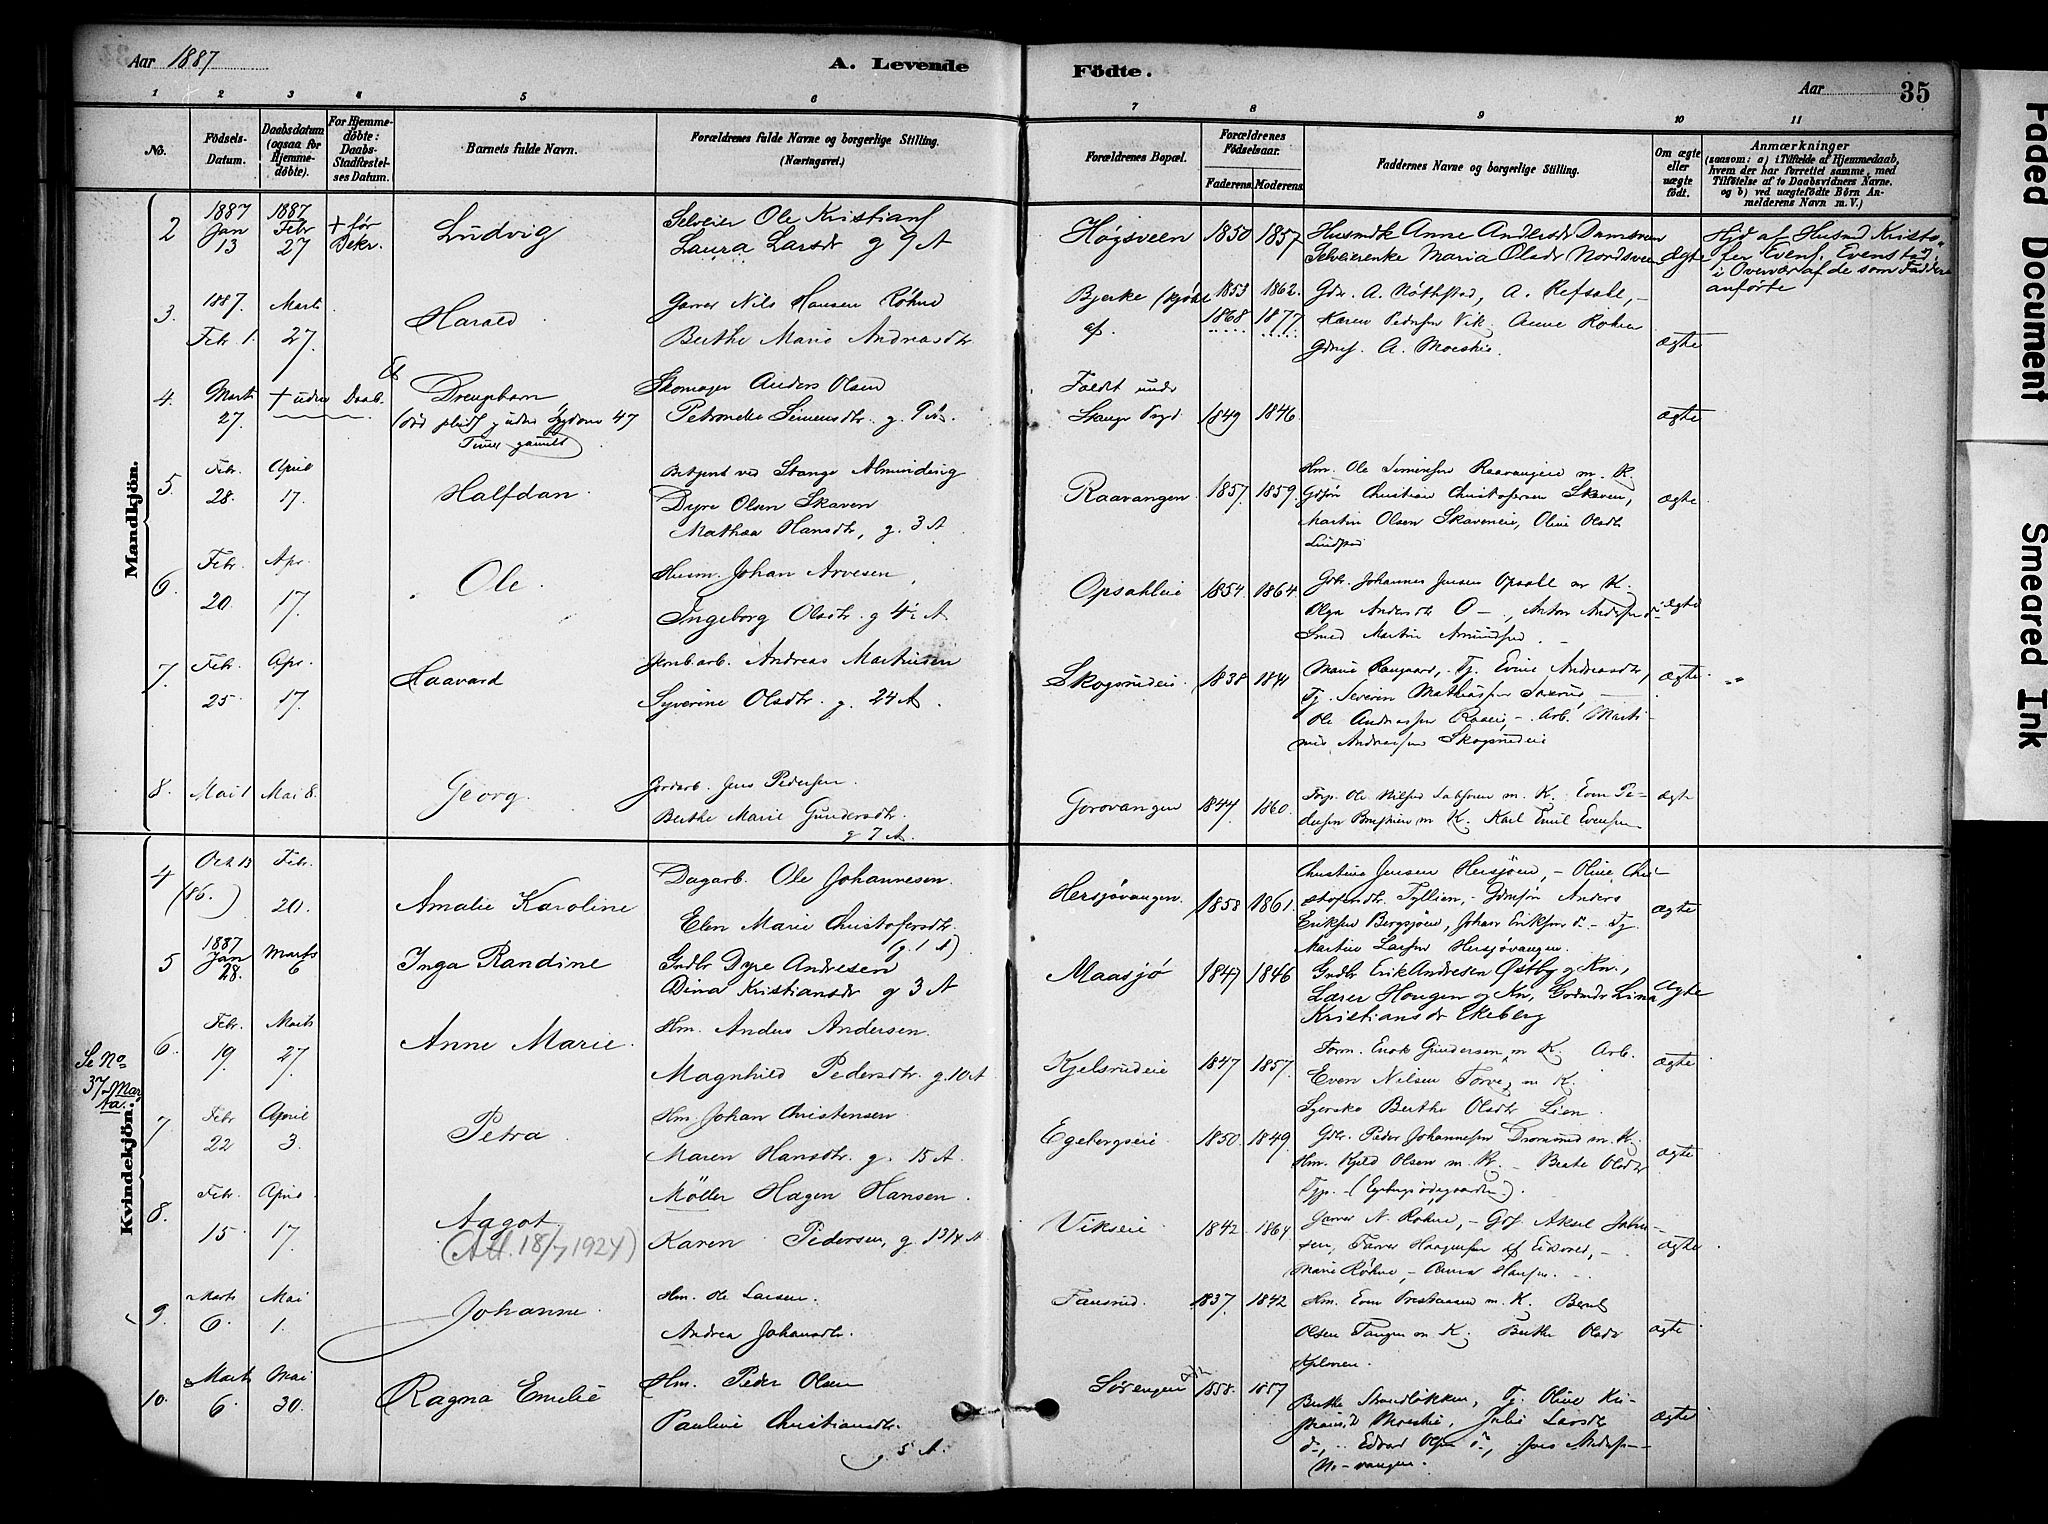 Aar 1887
A. Levende Födte.
Aar 35
1 2 3 4 5 6 7 8 9 10 11
No.
Födsels-Datum.
Daabsdatum (ogsaa for Hjemme-døbte).
For Hjemme-døbte: Daabs-Stadfæstel-ses Datum.
Barnets fulde Navn.
Forældrenes fulde Navne og borgerlige Stilling. (Næringsvei.)
Forældrenes Bopæl.
Forældrenes Födselsaar.
Faderens. Moderens.
Faddernes Navne og borgerlige Stilling.
Om ægte eller uægte födt.
Anmærkninger
(saasom: a) i Tilfælde af Hjemmedaab, hvem der har forrettet samme, med Tilføielse af to Daabsvidners Navne, og b) ved uægtefödte Börn An-melderens Navn m. V.)
Mandkjön.
2 1887 Jan 13 1887 Febr 27 + før Bekr. Ludvig
Selveier Ole Kristians
Laura Larsdr g 9 A
Høgsveen 1850 1857
Husmdk Anne Andersdr Damsveen
Selveierenke Maria Olsdr Nordsveen
ægte
Hjd af Husmd Kristo-
fer Evens. Evenstad,
i Overvær af de som Faddere
anførte
3. 1887. Febr 1. Marts 27. Harald
Garver Nils Hansen Røhne
Berthe Marie Andreasdtr
Bjerke 1853 1862.
1868 1877.
Gdr. A. Nøthstad, A. Refsal, -
Karen Pedersen Vik, Anne Rohne
A. Moestue.
ægte
4. Marts 27. + uden Daab. Et Drengebarn
47
Timer gammelt
Skomager Anders Olsen
Petronelle Simensdtr. g.
Födt under
Stange Prgd 1849 1846.
ægte
5. Febr. 28. April 17. Halfdan.
Betjent ved Stange Almending
Dyre Olsen Skaven
Mathea Hansdtr, g. 3 A
Raavangen. 1857. 1859.
Hm. Ole Simensen Raavangeie m. K.
Gdsøn Christian Christofersen Skaven,
Martin Olsen Skaveneie, Oline Olsdtr
Lindstad
ægte
6. Febr. 20. Apr. 17. Ole.
Husm. Johan Arvesen,
Ingeborg Olsdtr. g 4½ A
Opsahleie 1854. 1864.
Gdr. Johannes Jensen Opsal m K.
Olga Andersdtr O -, Anton Andersen do
Smed Martin Amundsen. -
ægte
7. Febr. 25. Apr. 17. Haavard
Jernb.arb. Andreas Martinsen
Syverine Olsdtr. g. 24 A.
Skogsrudeie. 1838. 1841
Marie Rangaard, Tj. Evine Andreasdtr,
Tj. Severin Mathiassen Saxrud, -
Ole Andreassen Raaeie, - Arb. Marti-
nus Andreassen Skogsrudeie
ægte. "
8. Mai 1 Mai 8. Georg.
Jordarb. Jens Pedersen.
Berthe Marie Gundersdtr.
g 7 A.
Gorovangen 1844. 1860.
m. K. Even Pe-
dersen m K. Karl Emil Evensen
ægte
Kvindekjön.
Se No 37 Marta.
4 Oct. 13 (86.) Febr. 20. Amalie Karoline
Dagarb. Ole Johannesen.
Elen Marie Christofersdtr.
(g. 1 A)
Hersjøvangen. 1858 1861.
Christine Jensen Hersjöen, - Oline Chri-
stofersdtr Tyllien, - Gdmsøn Anders
Eriksen Bergsjöen, Johan Eriksen do - Tj.
Martin Larsen Hersjøvangen.
ægte
5 1887 Jan 28. Marts 6 Inga Randine
Grdbr Dyre Andresen
Dina Kristiansdr g 3 A
Maasjø 1847 1846
Grdbr Erik Andresen Østby og Kn.,
Lærer Hougen og Kn, Grdmdr Lina
Kristiansdr Ekeberg
Ægte
6. Febr. 19. Marts 27. Anne Marie.
Hm. Anders Andersen.
Magnhild Pedersdtr. g. 10 A
Kjelsrudeie 1847 1857.
Form. Enok Gundersen, m K. Arb.
Even Nilsen Torve, m K.
Syerske Berthe Olsdtr Lien.
ægte
7 Febr 22 April 3. Petra.
Hm. Johan Christensen.
Maren Hansdtr. g. 15 A.
Egebergseie. 1850. 1849.
Gdr. Peder Johannesen m. K.
Hm. Kjeld Olsen m. K. - Beate Olsdtr
Tjp. (Egebergsødegaarden).
ægte
8. Febr. 15. April. 17. Aagot.
(Att. 18/7 1924)
Møller Hagen Hansen.
Karen Pedersen, g. 13/4 A
Vikseie 1842. 1864
Garver N. Rohne, - Grf. Aksel
sen, Farver Haagensen af Eidsvold, -
Marie Røhne, - Anna Hansen. -
ægte
9. Marts 6. Mai 1. Johanne.
Hm. Ole Larsen.
Andrea Johansdtr.
Fausrud. 1837. 1842
Hm. Even m. K. Bernt
Olsen Tangen m K. Berthe Olsdr
ægte
10. Marts 6. Mai 30. Ragna Emelie
Hm. Peder Olsen
Pauline Christiansdtr.
g. 5 A.
Sørengen 1858. 1857
Berthe Strandløkken, Tj. Oline Kri-
stiansd. Moestue, Julie Larsdtr
do, - Edvard Olsen do, Jens Anders-
No-vangen.
ægte
Faded Document
Smeared Ink